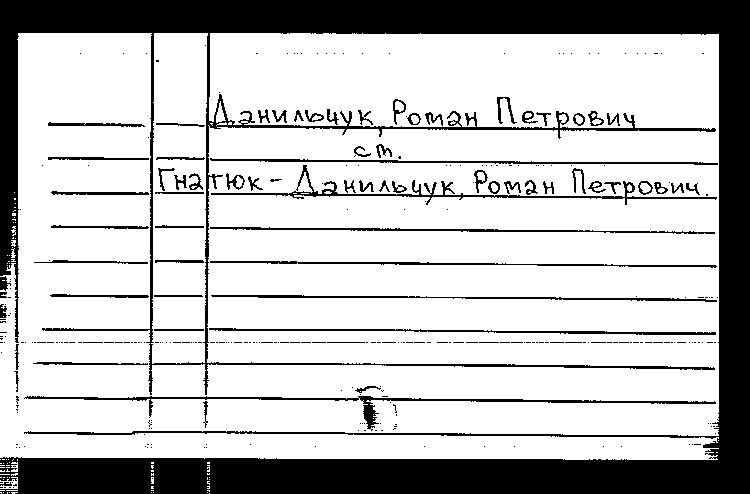 Данильчук, Роман Петрович
ст.
Гнатюк - Данильчук, Роман Петрович.